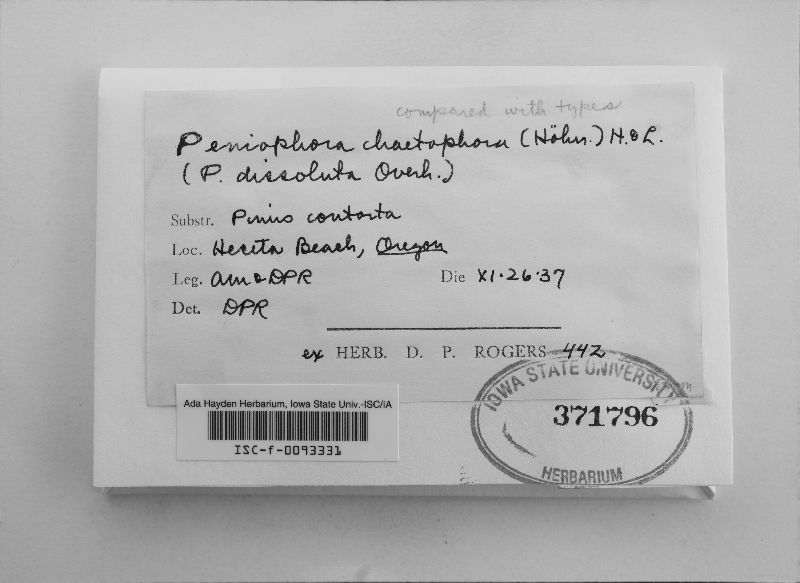 compared with types
Peniophora chaetophora (Höhn.) H. & L.
(P. dissoluta Overh.)
Substr. Pinus contorta
Loc. Heceta Beach, Oregon
Leg. AM & DPR Die XI·26·37
Det. DPR
ex HERB. D. P. ROGERS 442
IOWA STATE UNIVERSITY
371796
HERBARIUM
Ada Hayden Herbarium, Iowa State Univ.-ISC/IA
ISC-f-0093331